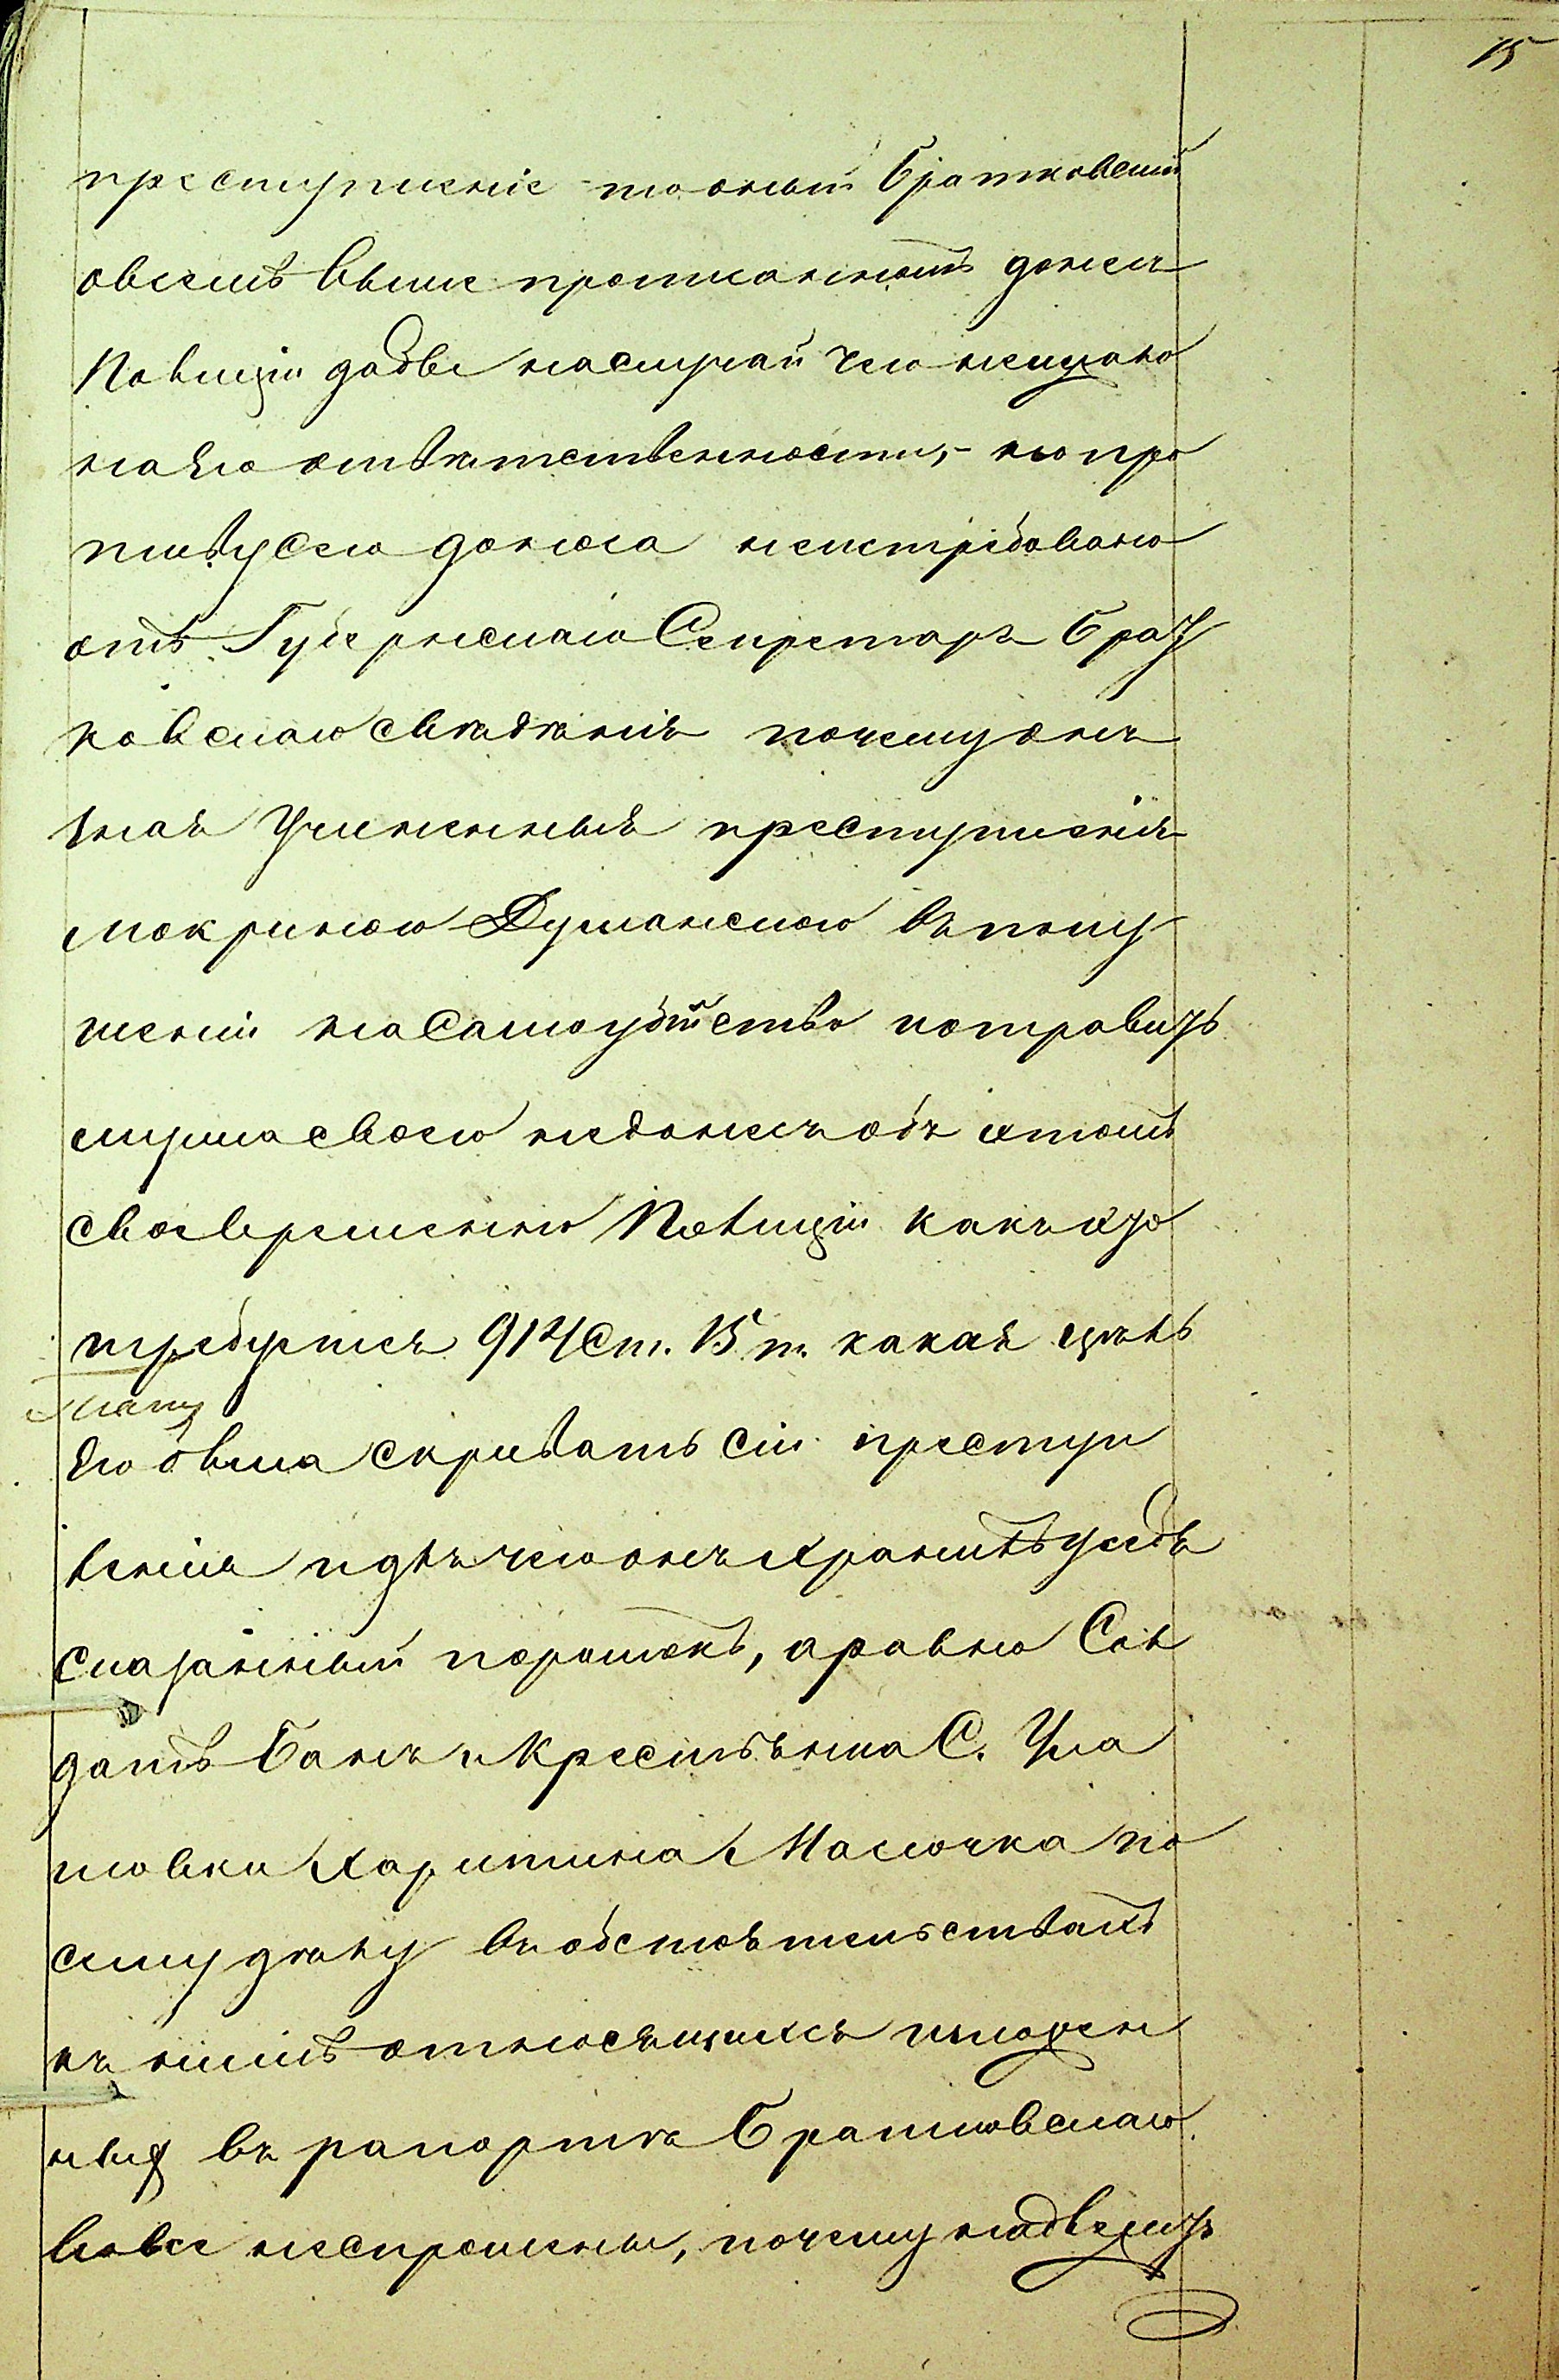 15
преступленіе то оный Братковскій
овсемъ выше прописанномъ донесъ
Полиціи дабы насмучай чего неупало
на его отвѣтственности, - но про
тиву сего доноса неистребовано
отъ Губернскаго Секретаря Брат
ковскаго свѣдѣнія почему онъ
зная учиненныя преступленія
Мокриною Думанскою въ поку
шеніи на самоубійство и отравить
мужа своего недонесъ объ этомъ
своевременно Полиціи какъ это
требуется 914 ст. 15 т. какая цѣль
была скрывать сіи преступ
ленія и для чего онъ хранилъ у себя
сказанный порошокъ, а равно Сол
датъ Банъ и Крестьянка С. Ула
новки Харитина Масючка по
сему дѣлу въ обстоятельствахъ
къ нимъ относящихся изложен
ныхъ въ рапортѣ Братковскаго
вовсе неспрошены, почему надлежитъ